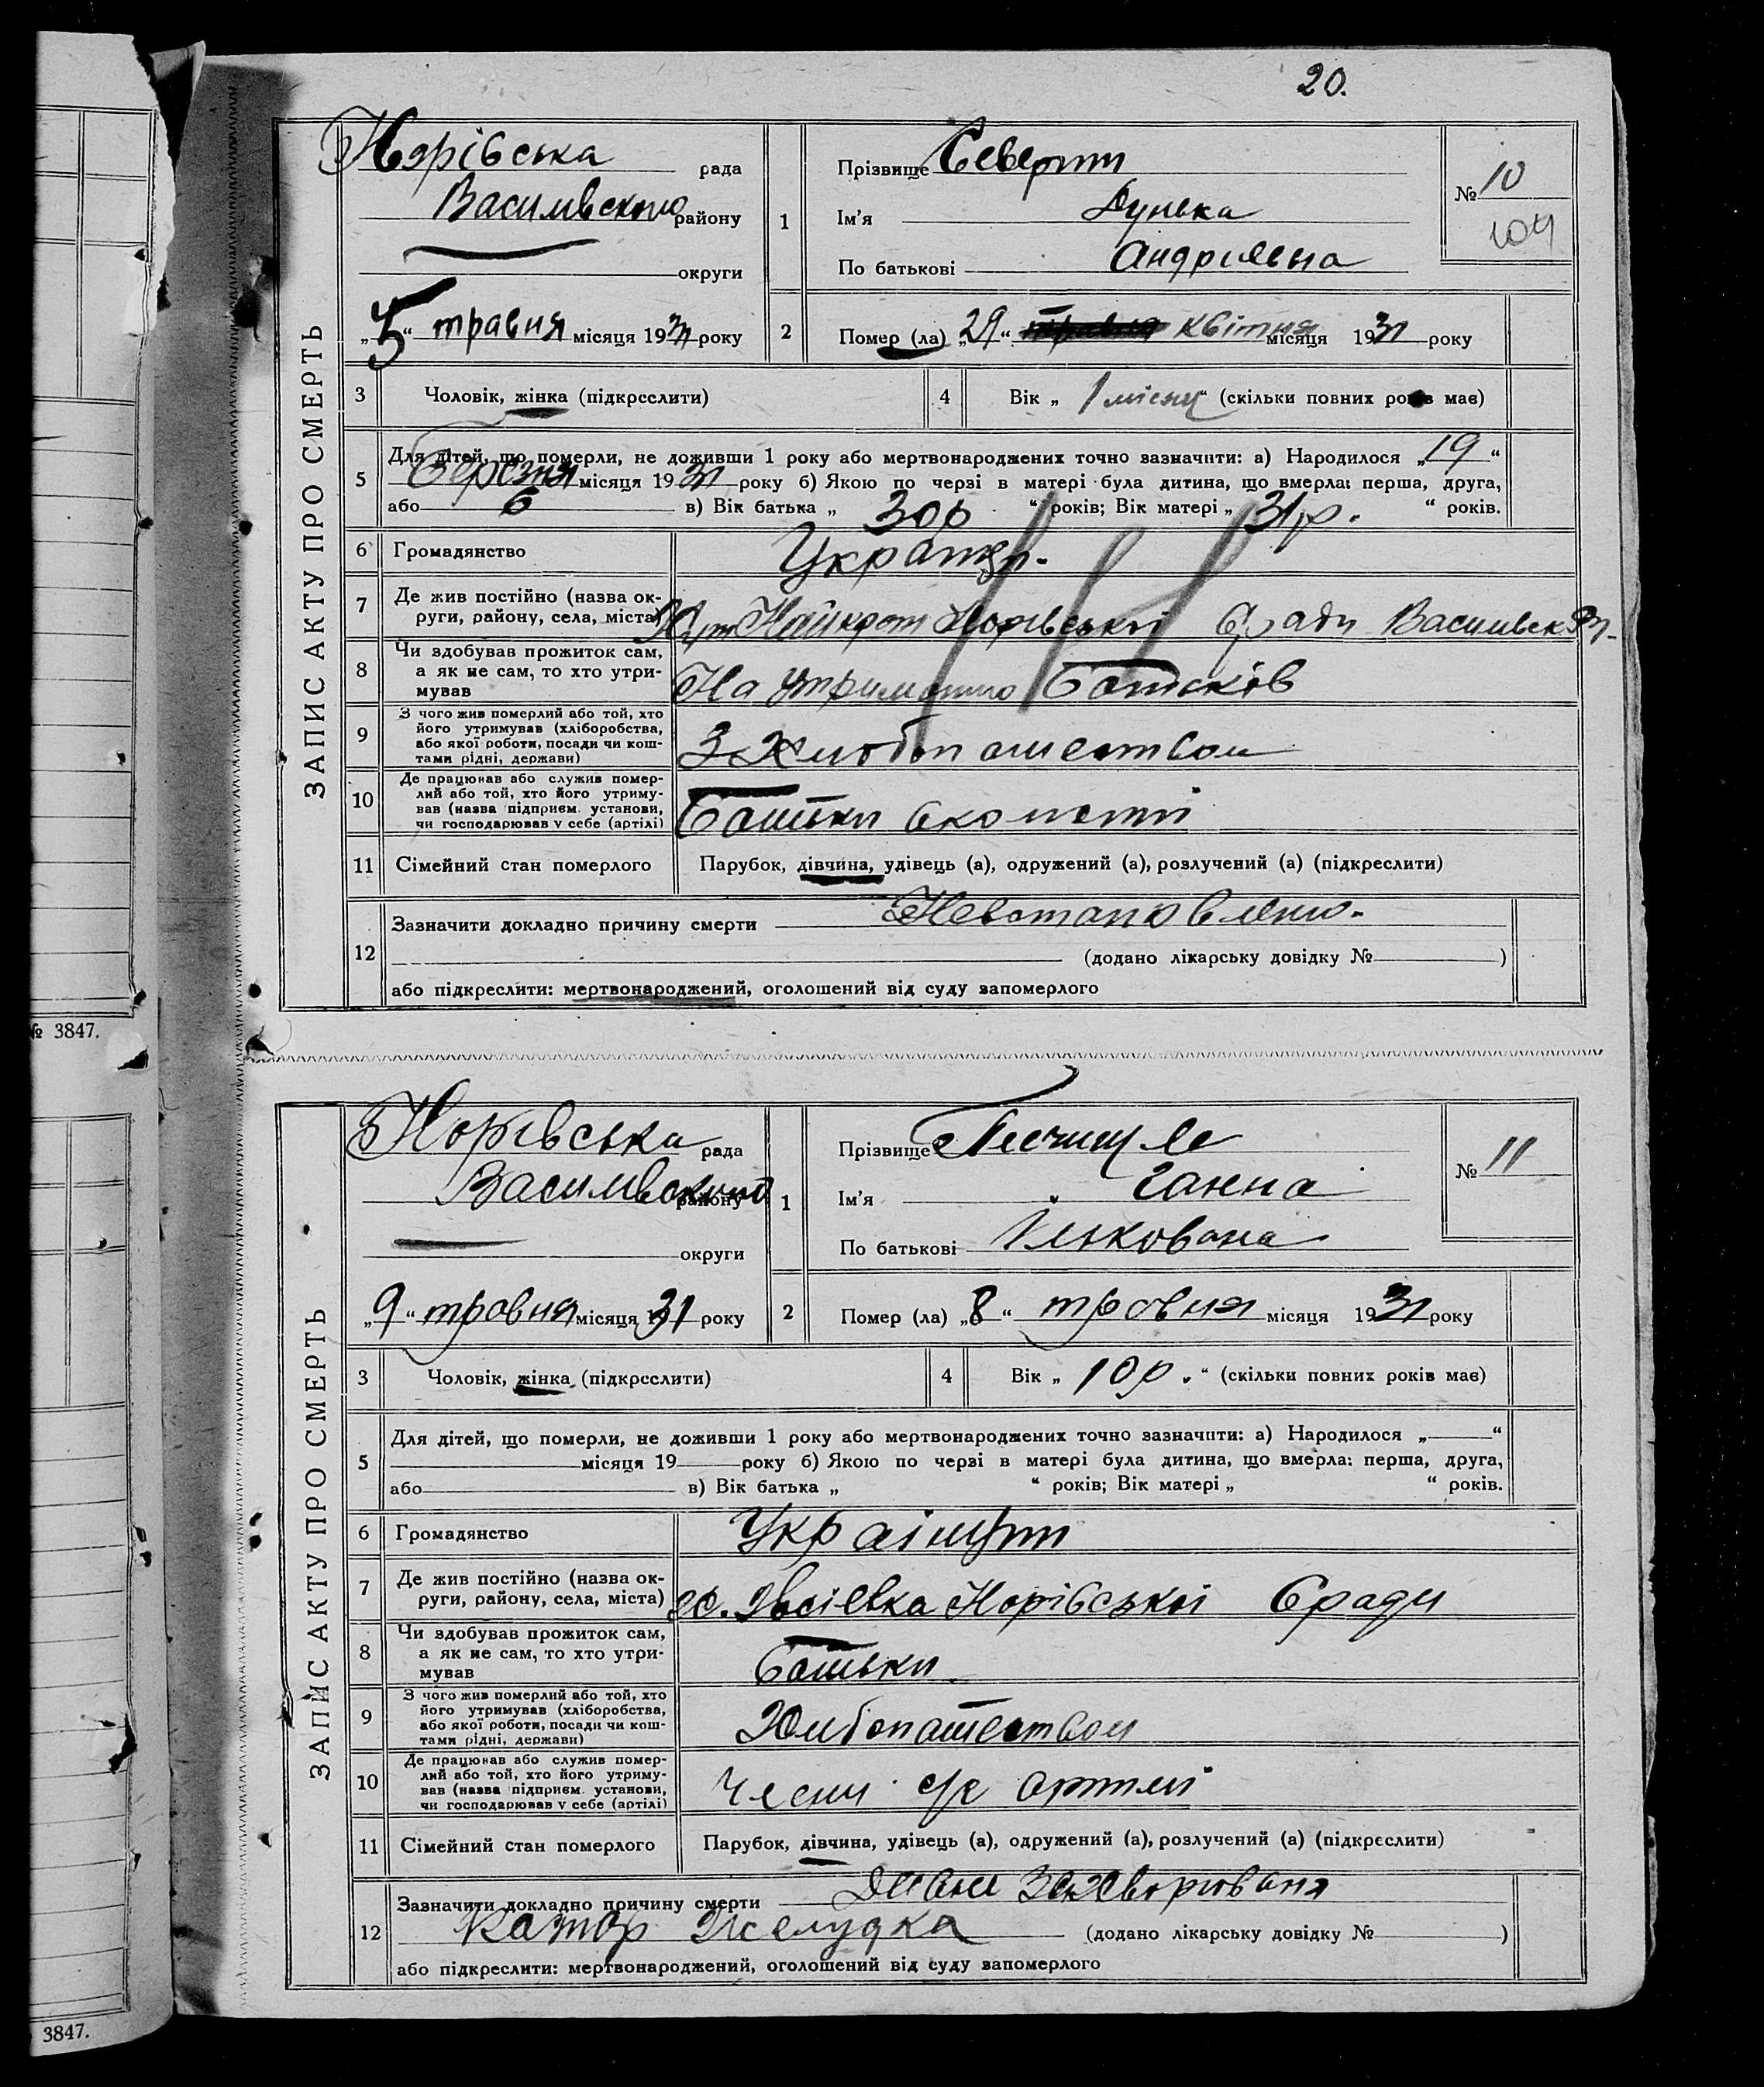 20.
ЗАПИС АКТУ ПРО СМЕРТЬ
Норівська рада
Васильвського району
округи
„5“ травня місяця 1931 року
1
Прізвище
Ім'я Дунька
По батькові Андриевна
№ 10
104
2 Помер (ла) „29“ квітня місяця 1931 року
3 Чоловік, жінка (підкреслити)
4 Вік „1 місяц“ (скільки повних років має)
5 Для дітей, що померли, не доживши 1 року або мертвонароджених точно зазначити: а) Народилося „19“
березня місяця 1931 року б) Якою по черзі в матері була дитина, що вмерла: перша, друга,
або 6 в) Вік батька „30р“ років; Вік матері „31р.“ років.
6 Громадянство
7 Де жив постійно (назва ок-
руги, району, села, міста) Норівської ради
8 Чи здобував прожиток сам,
а як не сам, то хто утри-
мував На батьків
9 З чого жив померлий або той, хто
його утримував (хліборобства,
або якої роботи, посади чи кош-
тами рідні, держави) З
10 Де працював або служив помер-
лий або той, хто його утриму-
вав (назва підприєм. установи,
чи господарював у себе (артілі) Батьки
11 Сімейний стан померлого Парубок, дівчина, удівець (а), одружений (а), розлучений (а) (підкреслити)
12 Зазначити докладно причину смерти
(додано лікарську довідку № )
або підкреслити: мертвонароджений, оголошений від суду запомерлого
№ 3847.
ЗАПИС АКТУ ПРО СМЕРТЬ
Норівська рада
Васильвського району
округи
„9“ травня місяця 1931 року
1
Прізвище
Ім'я Ганна
По батькові
№ 11
2 Помер (ла) „8“ травня місяця 1931 року
3 Чоловік, жінка (підкреслити)
4 Вік „10р.“ (скільки повних років має)
5 Для дітей, що померли, не доживши 1 року або мертвонароджених точно зазначити: а) Народилося „ “
місяця 19 року б) Якою по черзі в матері була дитина, що вмерла: перша, друга,
або в) Вік батька „ “ років; Вік матері „ “ років.
6 Громадянство
7 Де жив постійно (назва ок-
руги, району, села, міста) Норівської Сради
8 Чи здобував прожиток сам,
а як не сам, то хто утри-
мував Батьки
9 З чого жив померлий або той, хто
його утримував (хліборобства,
або якої роботи, посади чи кош-
тами рідні, держави)
10 Де працював або служив помер-
лий або той, хто його утриму-
вав (назва підприєм. установи,
чи господарював у себе (артілі) с/г артілі
11 Сімейний стан померлого Парубок, дівчина, удівець (а), одружений (а), розлучений (а) (підкреслити)
12 Зазначити докладно причину смерти
Катар желудка (додано лікарську довідку № )
або підкреслити: мертвонароджений, оголошений від суду запомерлого
3847.